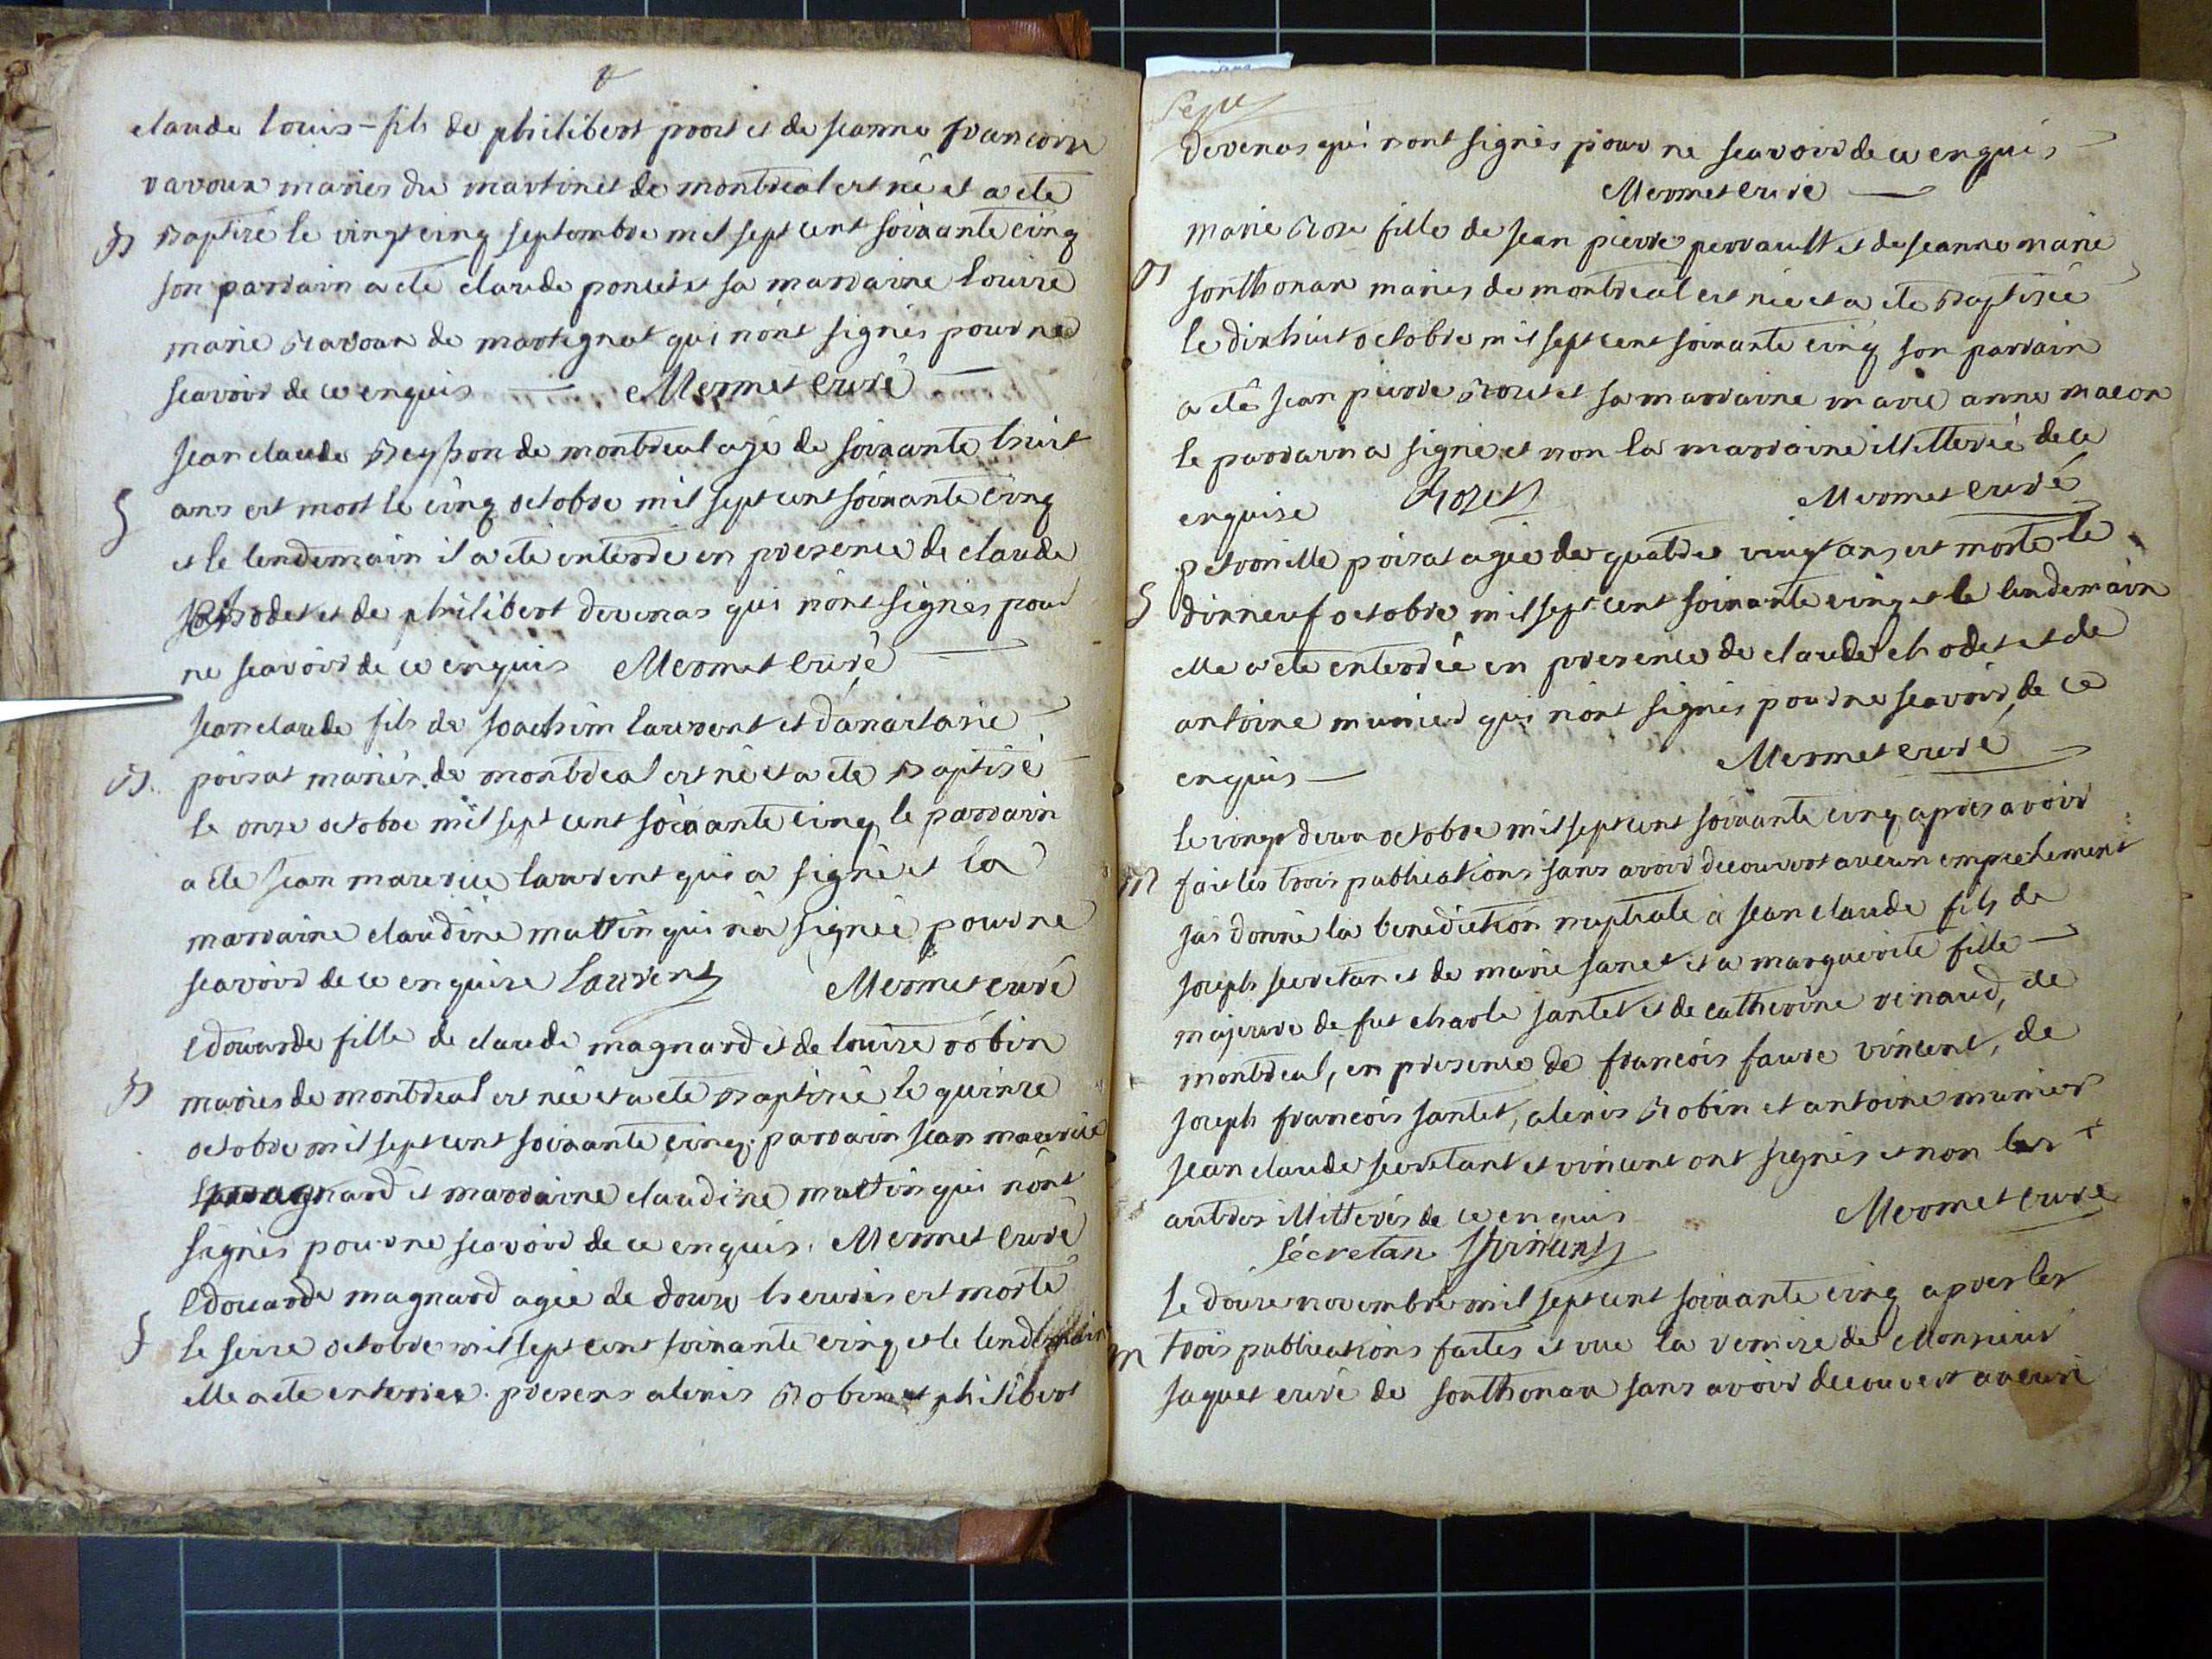 claude louis - fils de philibert prost et de jeanne francoise
ravoux mariés du martinet de montreal est né et a eté
B baptisé le vingt cinq septembre mil sept cent soixante cinq
son parrain a eté claude poncet et sa marraine louise
marie Ravoux de martignat qui n'ont signés pour ne
scavoir de ce enquis — Mermet curé —
jean claude Reyßon de montreal agé de soixante huit
S ans est mort le cinq octobre mil sept cent soixante cinq
et le lendemain il a eté enterré en presence de claude
chodet et de philibert devenas qui n'ont signés pour
ne scavoir de ce enquis Mermet curé
jean claude fils de joachim laurent et d'anastasie
B. poisat mariés de montreal est né et a eté baptisé
le onze octobre mil sept cent soixante cinq, le parrain
a eté jean maurice laurent qui a signé et la
marraine claudine mattin qui n'a signée pour ne
scavoir de ce enquise Laurent Mermet curé
Edouarde fille de claude magnard et de louise robin
B mariés de montreal est née et a eté baptisée le quinze
octobre mil sept cent soixante cinq. parrain jean maurice
magnard et marraine claudine mattin qui n'ont
signés pour ne scavoir de ce enquis. Mermet curé
Edouarde magnard agée de douze heures est morte
S le seize octobre mil sept cent soixante cinq et le lendemain
elle a eté enterrée. presens alexis Robin et philibert
Sept
devenas qui n'ont signés pour ne scavoir de ce enquis
Mermet curé —
marie Rose fille de jean pierre perrault et de jeanne marie
B sonthonax mariés de montreal est née et a eté baptisée
le dixhuit octobre mil sept cent soixante cinq son parrain
a eté jean pierre Rozet et sa marraine marie anne macon
le parrain a signé et non la marraine illitterée de ce
enquise Rozet Mermet curé
petronille poisat agée de quatre vingt ans est morte le
S dixneuf octobre mil sept cent soixante cinq et le lendemain
elle a eté enterrée en presence de claude chodet et de
antoine munier qui n'ont signés pour ne scavoir de ce
enquis — Mermet curé
le vingt deux octobre mil sept cent soixante cinq apres avoir
m fait les trois publications sans avoir decouvert aucun empechement
j'ai donné la benediction nuptiale à jean claude fils de
joseph secretan et de marie janet et a marguerite fille —
majeure de fut charle jantet et de catherine renaud, de
montreal, en presence de francois favre vincent, de
joseph francois jantet, alexis Robin et antoine munier
jean claude secretant et vincent ont signés et non les
autres illitterés de ce enquis Mermet curé
Sécretan Vincent
le douze novembre mil sept cent soixante cinq apres les
m trois publications faites et vue la remise de Monsieur
jaquet curé de sonthonax sans avoir decouvert aucun